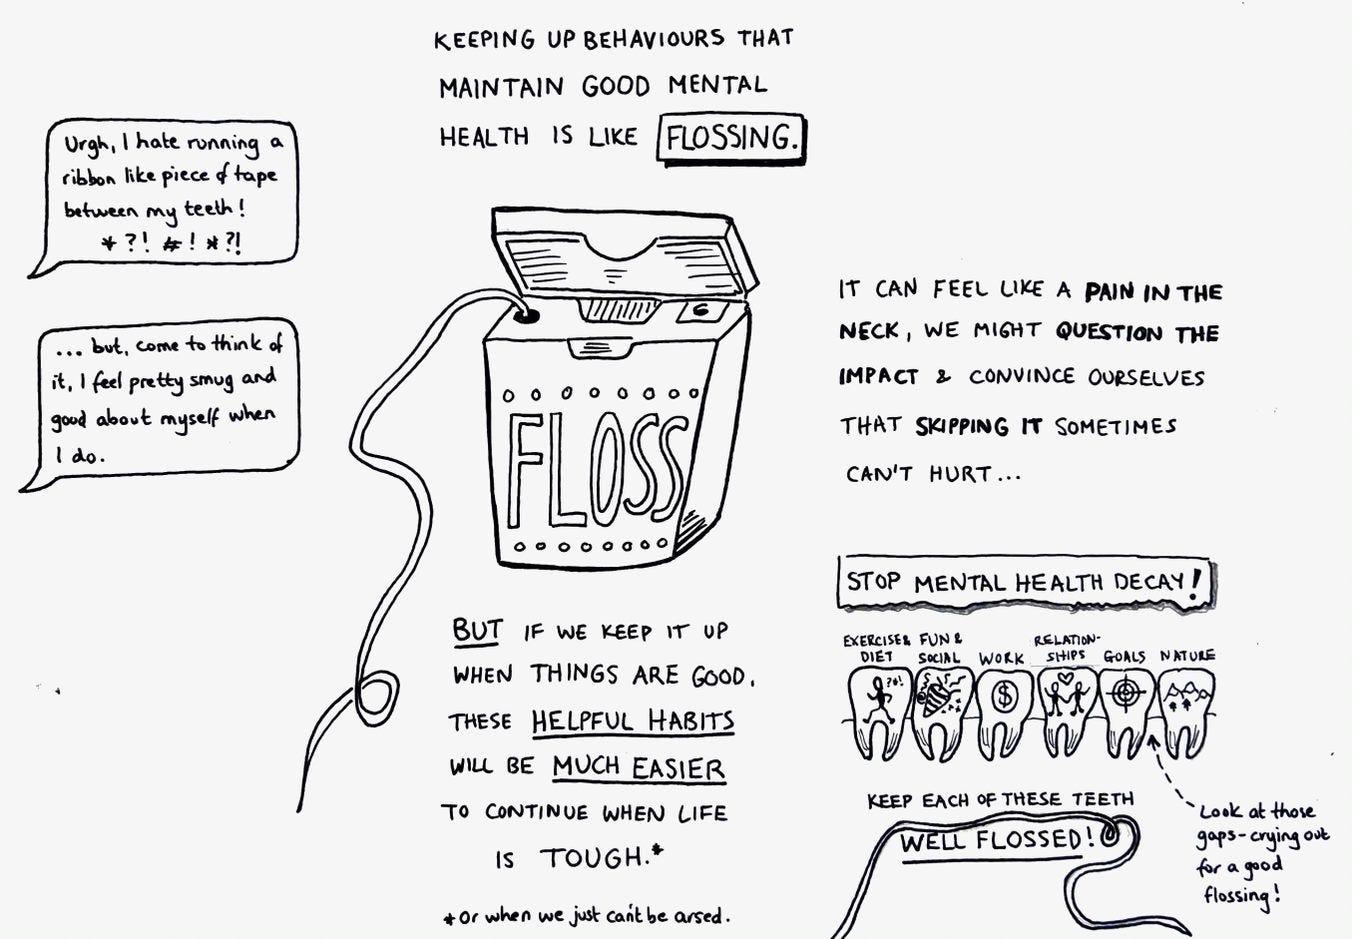 KEEPING UP BEHAVIOURS THAT
MAINTAIN GOOD MENTAL
HEALTH IS LIKE FLOSSING.
Urgh, I hate running a
ribbon like piece of tape
between my teeth!
*?! #! *?!
... but, come to think of
it, I feel pretty smug and
good about myself when
I do.
FLOSS
IT CAN FEEL LIKE A PAIN IN THE
NECK, WE MIGHT QUESTION THE
IMPACT & CONVINCE OURSELVES
THAT SKIPPING IT SOMETIMES
CAN'T HURT...
BUT IF WE KEEP IT UP
WHEN THINGS ARE GOOD,
THESE HELPFUL HABITS
WILL BE MUCH EASIER
TO CONTINUE WHEN LIFE
IS TOUGH.*
*Or when we just can't be arsed.
STOP MENTAL HEALTH DECAY!
EXERCISE &
DIET
FUN &
SOCIAL
WORK
RELATION-
SHIPS
GOALS
NATURE
?!
$
KEEP EACH OF THESE TEETH
WELL FLOSSED!
Look at those
gaps - crying out
for a good
flossing!